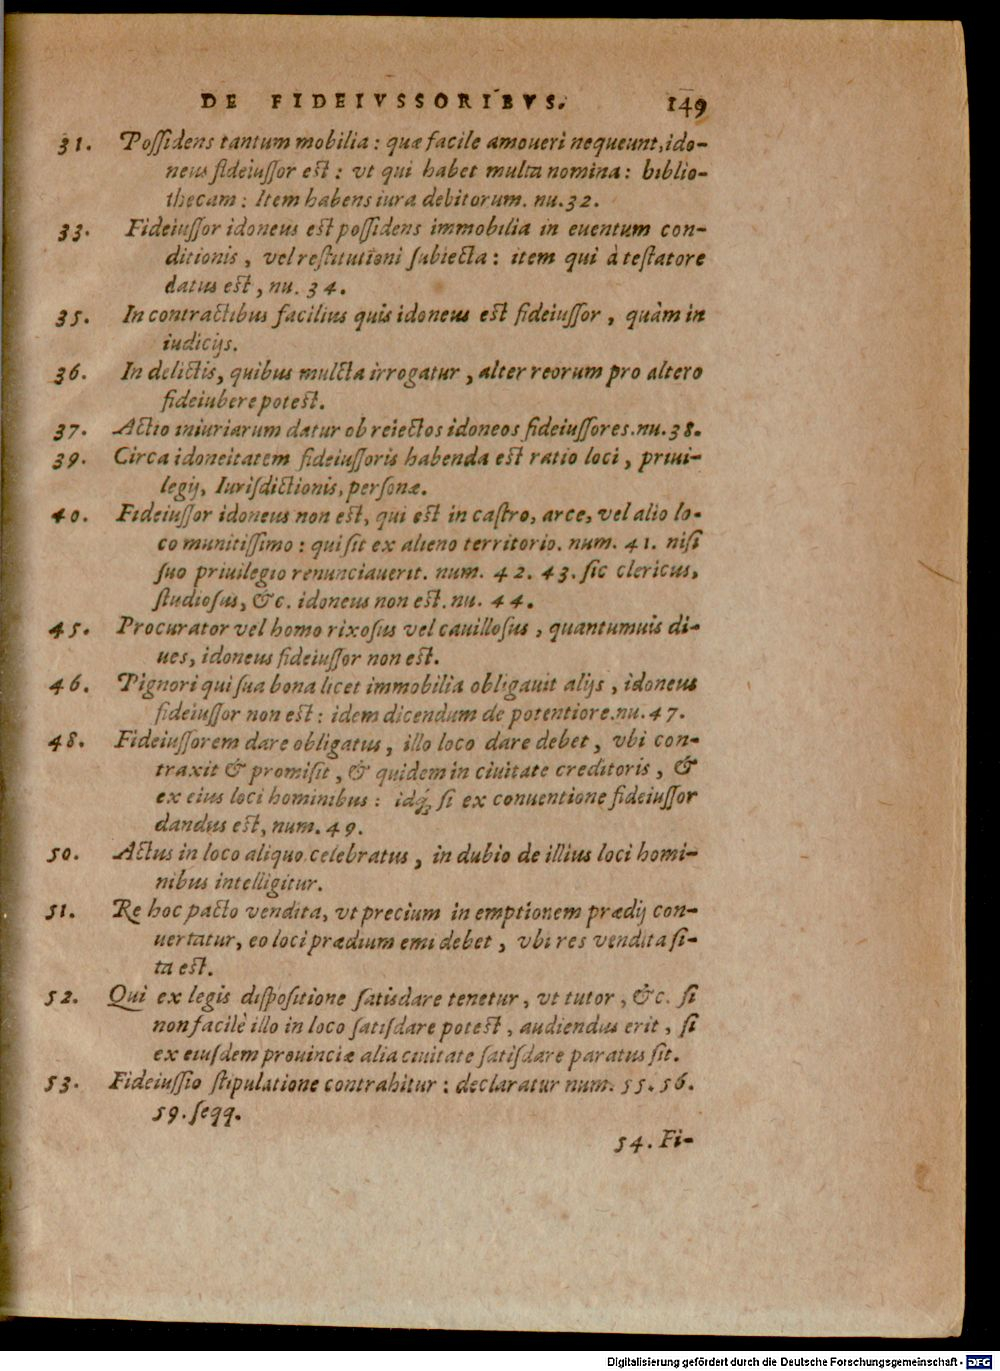 DE FIDEIVSSORIBVS. 149
31. Possidens tantum mobilia: quæ facile amoueri nequeunt, ido-
neus fideiussor est: vt qui habet multa nomina: biblio-
thecam: Item habens iura debitorum. nu.32.
33. Fideiussor idoneus est possidens immobilia in euentum con-
ditionis, vel restitutioni subiecta: item qui à testatore
datus est, nu. 34.
35. In contractibus facilius quis idoneus est fideiussor, quàm in
iudicijs.
36. In delictis, quibus mulcta irrogatur, alter reorum pro altero
fideiubere potest.
37. Actio iniuriarum datur ob reiectos idoneos fideiussores.nu.38.
39. Circa idoneitatem fideiussoris habenda est ratio loci, priui-
legij, Iurisdictionis, personæ.
40. Fideiussor idoneus non est, qui est in castro, arce, vel alio lo-
co munitissimo: qui sit ex alieno territorio. num. 41. nisi
suo priuilegio renunciauerit. num. 42. 43. sic clericus,
studiosus, &c. idoneus non est. nu. 44.
45. Procurator vel homo rixosus vel cauillosus, quantumuis di-
ues, idoneus fideiussor non est.
46. Pignori qui sua bona licet immobilia obligauit alijs, idoneus
fideiussor non est: idem dicendum de potentiore.nu.47.
48. Fideiussorem dare obligatus, illo loco dare debet, vbi con-
traxit & promisit, & quidem in ciuitate creditoris, &
ex eius loci hominibus: idq́; si ex conuentione fideiussor
dandus est, num. 49.
50. Actus in loco aliquo celebratus, in dubio de illius loci homi-
nibus intelligitur.
51. Re hoc pacto vendita, vt precium in emptionem prædij con-
uertatur, eo loci prædium emi debet, vbi res vendita si-
ta est.
52. Qui ex legis dispositione satisdare tenetur, vt tutor, &c. si
non facilè illo in loco satisdare potest, audiendus erit, si
ex eiusdem prouinciæ alia ciuitate satisdare paratus sit.
53. Fideiussio stipulatione contrahitur: declaratur num. 55. 56.
59. seqq.
54. Fi-
Digitalisierung gefördert durch die Deutsche Forschungsgemeinschaft - DFG